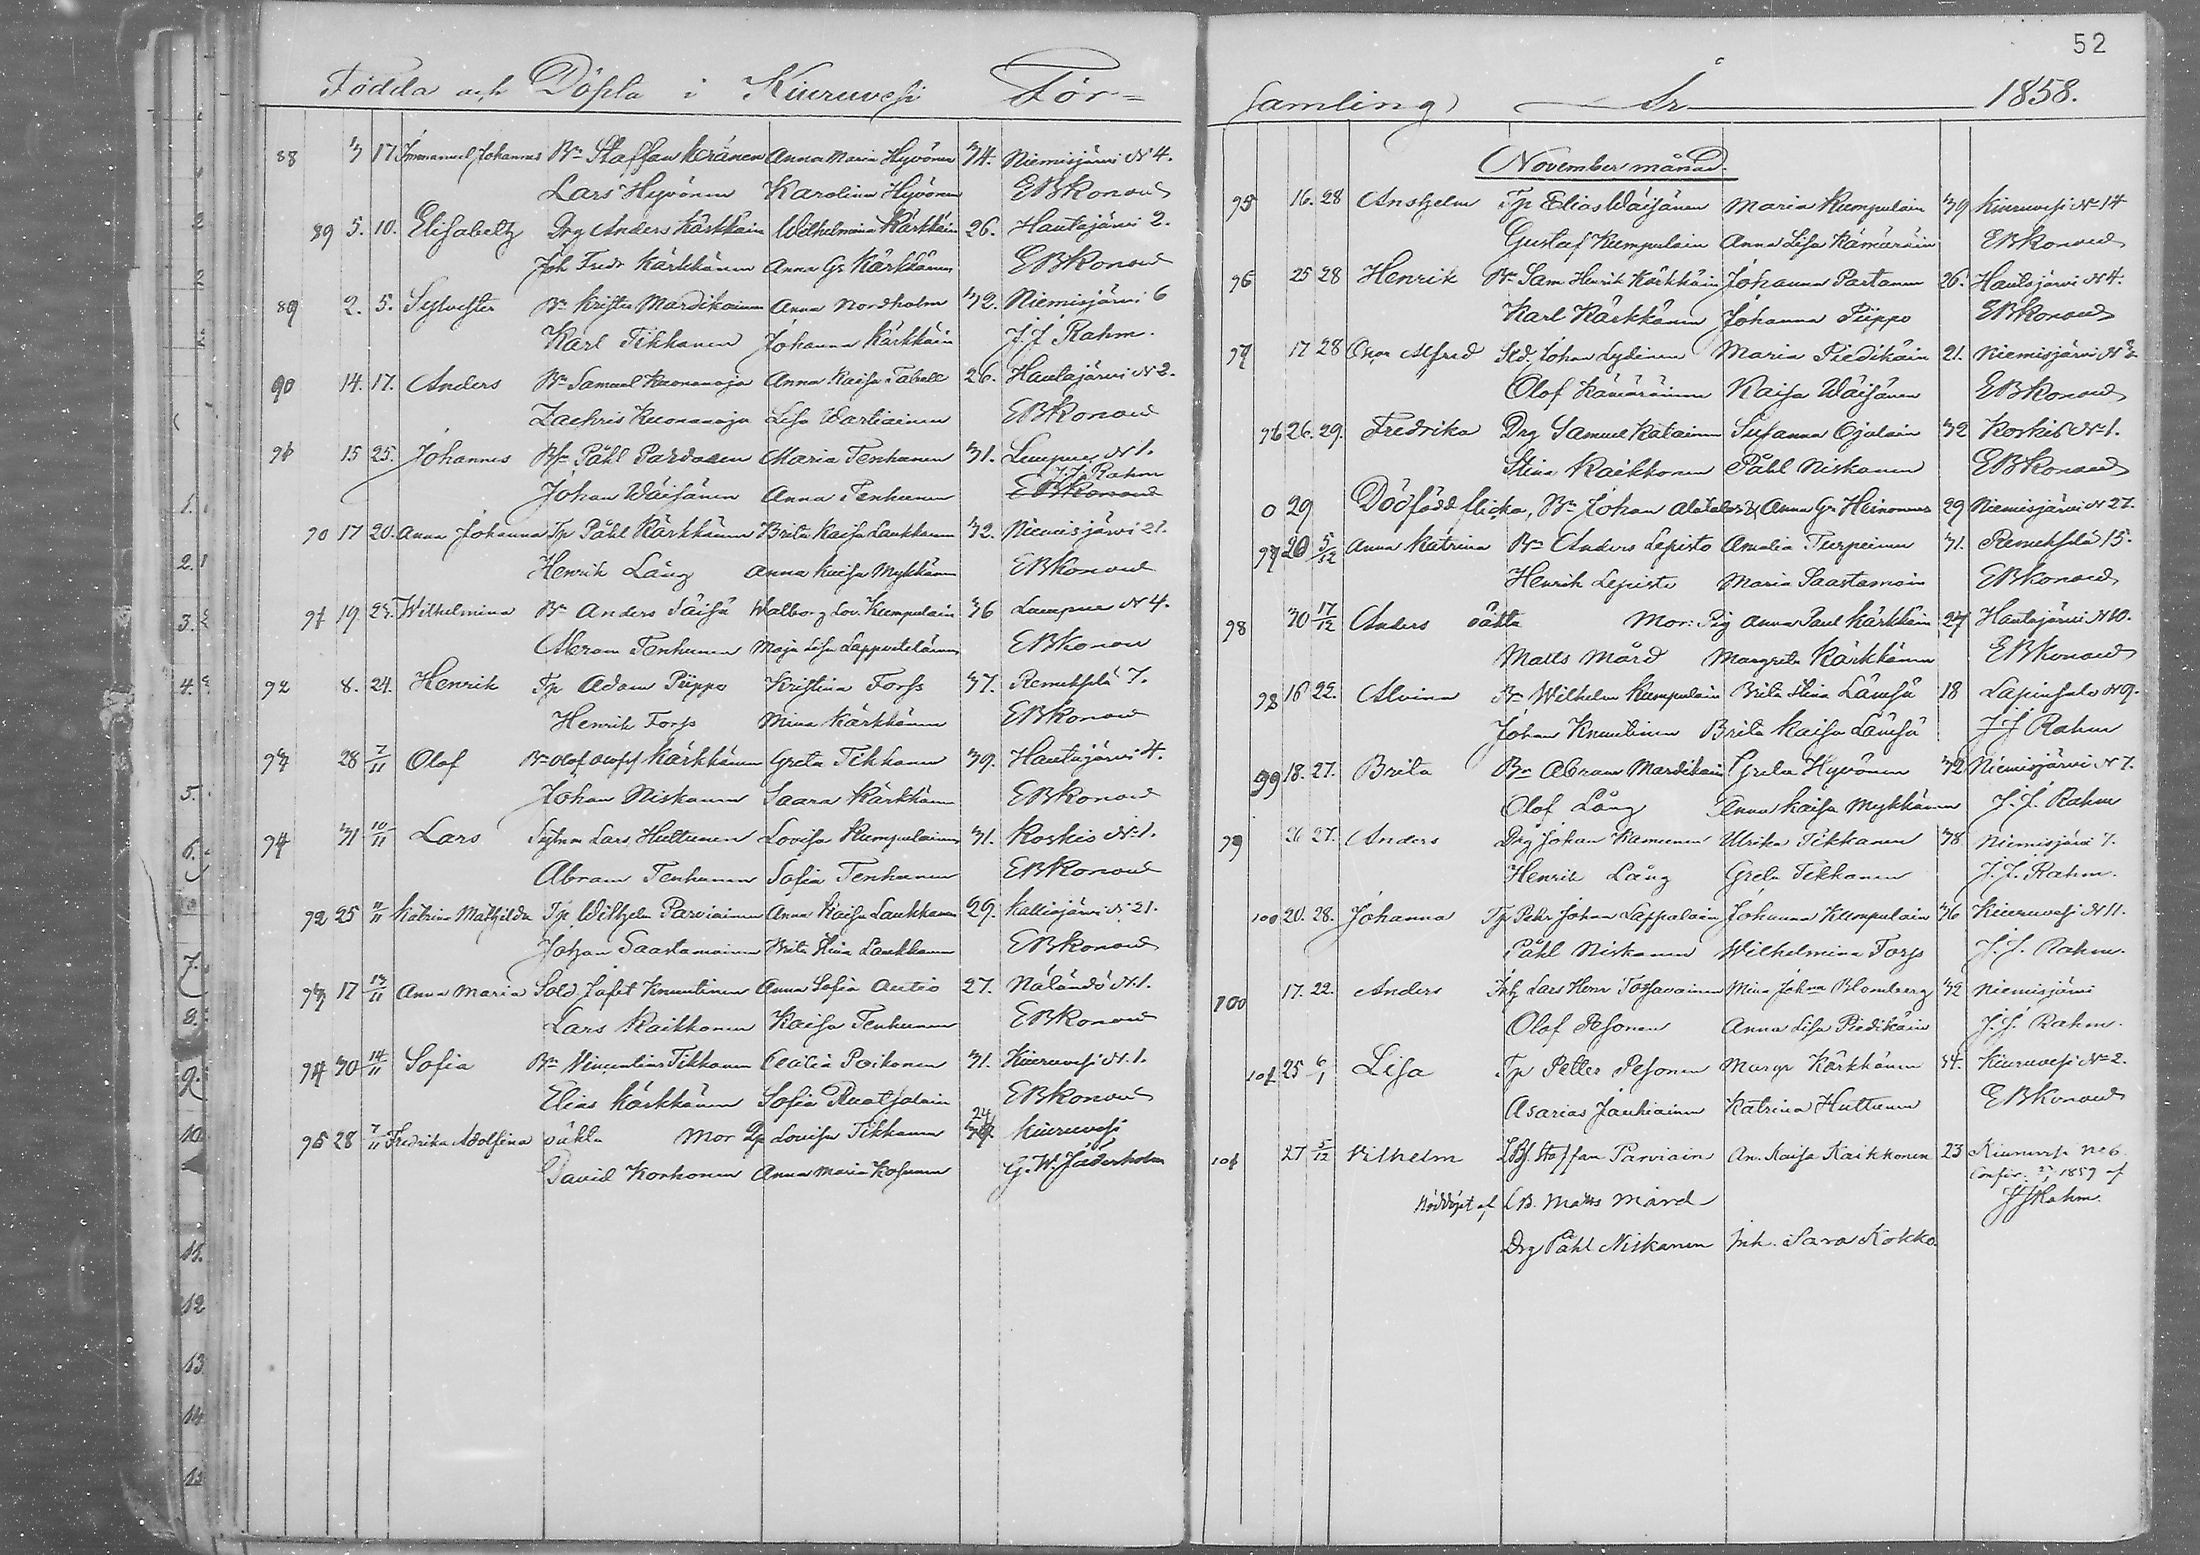 52
Födda och Döpta i Kiuruvesi För=
88 3 17 Immanuel Johannes Bn Staffan Keränen Anna Maria Hyvönen 34. Niemisjärvi N 4.
Lars Hyvönen Karolina Hyvönen EBKonow
89 5. 10. Elisabeth Drg Anders Kärkkäin Wilhelmina Kärkkäin 26. Hautajärvi 2.
Joh Fredr Kärkkäinen Anna Gr Kärkkäinen EBKonow
89 2. 5. Sylvester Bn Krister Mardikainen Anna Nordholm 32. Niemisjärvi 6
Karl Tikkanen Johanna Kärkkäin J.J. Rahm.
90 14. 17. Anders Bn Samuel Kuonanoja Anna Kaisa Tabell 26. Hautajärvi N 2.
Zachris Kuonanoja Lisa Wartiainen EBKonow
91 15 25. Johannes Påhl Maria Tenhunen 31. N 1.
J.J. Rahm
Johan Wäisänen Anna Tenhunen EBKonow
90 17 20. Anna Johanna Tp Påhl Kärkkäinen Brita Kaisa Laukkanen 32. Niemisjärvi 21.
Henrik Lång Anna Kaisa Mykkänen EBKonow
91 19. 25. Wilhelmina Bn Anders Walborg Lov. Kumpulain 36 N 4.
Abram Tenhunen Maja Lisa EBKonow
92 8. 24. Henrik Tp Adam Piippo Kristina Forss 37. Remeskylä 7.
Henrik Forss Mina Kärkkäinen EBKonow
93 28 7/11 Olof Bn Olof Kärkkäinen Greta Tikkanen 39. Hautajärvi 4.
Johan Niskanen Saara Kärkkäinen EBKonow
94 31 10/11 Lars Lars Huttunen Lovisa Kumpulainen 31. Koskis N 1.
Abram Tenhunen Sofia Tenhunen EBKonow
92 25 11/11 Katrina Mathilda Tp Wilhelm Parviainen Anna Kaisa Laukkanen 29. Kalliojärvi N 21.
Johan Saastamoinen Brita Stina Laukkanen EBKonow
93 17 13/11 Anna Maria Sold Jafet Knuutinen Anna Sofia Autio 27. Näländö N 1.
Lars Kaikkonen Kaisa Tenhunen EBKonow
94 30 14/11 Sofia Bn Vincentius Tikkanen Cecilia Poikonen 31. Kiuruvesi N 1.
Elias Kärkkäinen Sofia Ruotsalain EBKonow
24
95 28 7/11 Fredrika Adolfina oäkta Mor Lovisa Tikkanen Kiuruvesi
David Korhonen Anna Maria Kosunen G.W. Jäderholm
samling År 1858.
November månad.
95 16. 28 Anshelm Tp Elias Wäisänen Maria Kumpulain 39 Kiuruvesi N 14
Gustaf Kumpulain Anna Lisa Kämäräin EBKonow
96 25 28 Henrik Bn Sam Henrik Kärkkäin Johanna Partanen 26. Hautajärvi N 4.
Karl Kärkkäinen Johanna Piippo EBKonow
97 17 28 Oscar Alfred Sld. Johan Lydinen Maria Piedikäin 21. Niemisjärvi
Olof Kämäräinen Kaisa Wäisänen EBKonow
96 26. 29. Fredrika Drg Samuel Katainen Susanna Ojalain 32 Koskis N 1.
Stina Kaikkonen Påhl Niskanen EBKonow
0 29 Dödfödd flicka, Bn Johan Alatalo & Anna Gr Heinonen 29 Niemisjärvi N 27.
97 20 5/12 Anna Katrina Bn Anders Lepistö Amalia Turpeinen 31. Remeskylä 15.
Henrik Lepistö Maria Saastamoin EBKonow
98 30 17/12 Anders oäkta Mor: Pig Anna Paul Kärkkäin 27 Hautajärvi N 10.
Matts Mård Margreta Kärkkäinen EBKonow
98 16 22. Alvina Bn Wilhelm Kumpulain Brita Stina Länsä 18 Lapinsalo N 9.
Johan Knuutinen Brita Kaisa Länsä J.J. Rahm
99 18. 27. Brita Bn Abram Mardikain Greta Hyvönen 32 Niemisjärvi N 7.
Olof Lång Anna Kaisa Mykkänen J.J. Rahm
99 26 27. Anders Drg Johan Kamunen Ulrika Tikkanen 38 Niemisjärvi 7.
Henrik Lång Greta Tikkanen J.J. Rahm.
100 20. 28. Johanna Tp Pehr Johan Lappalain Johanna Kumpulain 36 Kiuruvesi N 11.
Påhl Niskanen Wilhelmina Forss J.J. Rahm.
100 17. 22. Anders Inh Lars Henr Torvainen Mina Johna Blomberg 32 Niemisjärvi
Olof Pesonen Anna Lisa Piedikäin J.J. Rahm.
101 25 6/1 Lisa Tp Petter Pesonen Margr Kärkkäinen 34. Kiuruvesi N 2.
Asarias Jauhiainen Katrina Huttunen EBKonow
101 27 5/12 Vilhelm Staffan Parviain An. Kaisa Kaikkonen 23 Kiuruvesi No 6
Confir. 1859 af
Nöddöpt af LB. Matts Mård JJRahm.
Drg Påhl Niskanen Inh. Sara Kokko.